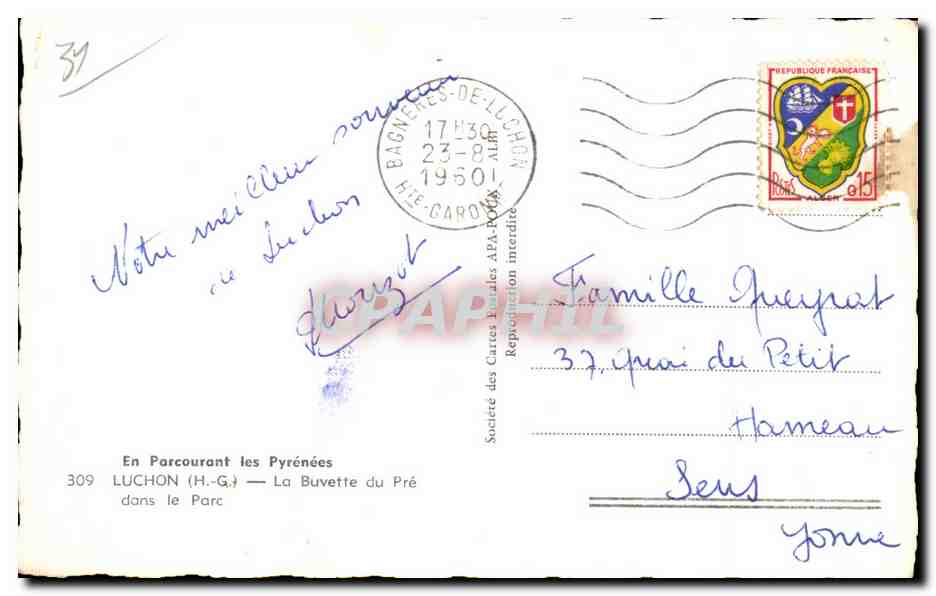 31
Notre meilleur souvenir
de Luchon
BAGNERES-DE-LUCHON
17H30
23-8
1960
HTE-GARONNE
REPUBLIQUE FRANÇAISE
POSTES 0,15
ALGER
Société des Cartes Postales APA-POUX ALBI
Reproduction interdite
CPAPHIL
Famille Queyrat
37, Quai du Petit
Hameau
Sens
Yonne
En Parcourant les Pyrénées
309 LUCHON (H.-G.) — La Buvette du Pré
dans le Parc